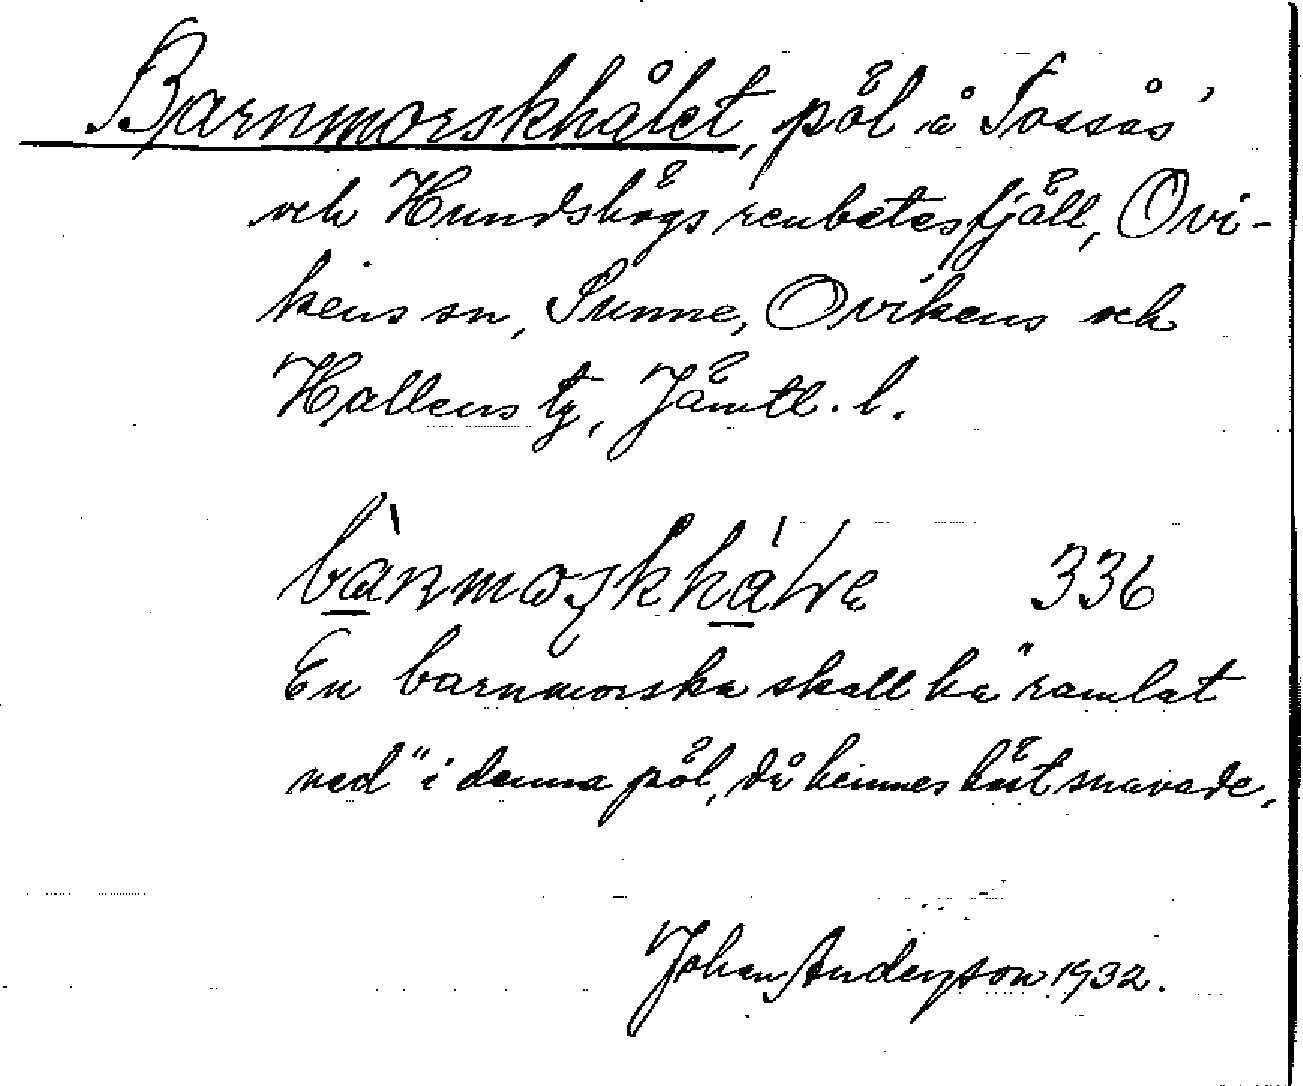 Barnmorskhålet, pöl å Tossås'
och Hundshögs renbetesfjäll, Ovi-
kens sn, Sunne, Ovikens och
Hallens tg, Jämtl. l.
336
En barnmorska skall ha "ramlat
ned" i denna pöl, då hennes häst snavade.
Johan Anderson 1932.